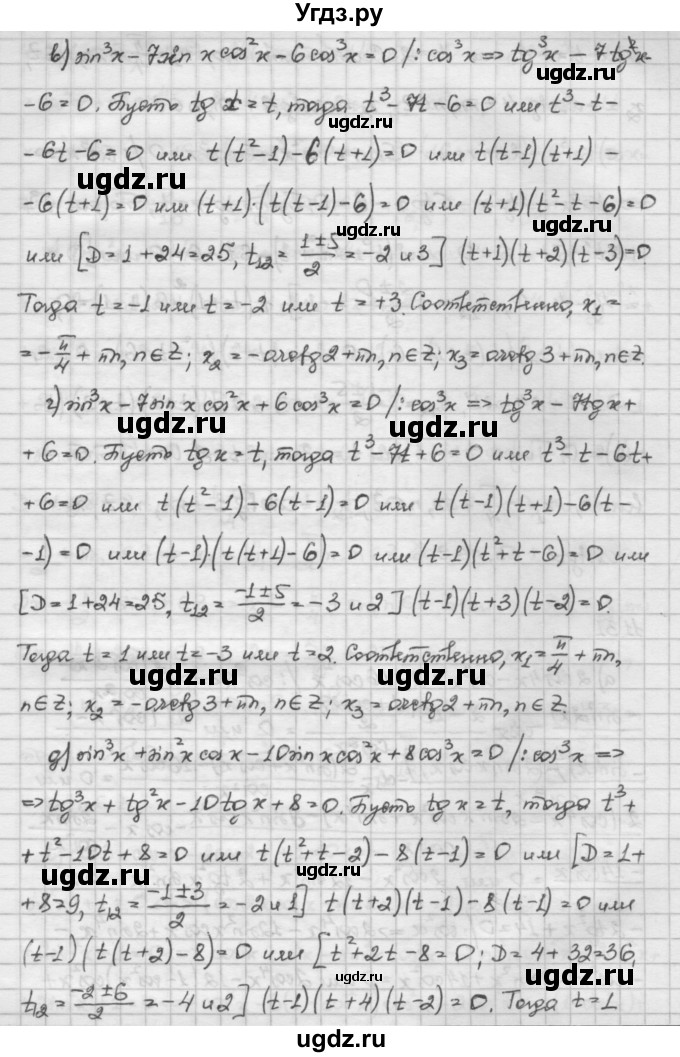 Угдз.ру
в) sin³x − 7sin x cos²x − 6cos³x = 0 /: cos³x => tg³x − 7tg²x −
− 6 = 0. Пусть tg x = t, тогда t³ − 7t − 6 = 0 или t³ − t −
ugdz.ru
ugdz.ru
− 6t − 6 = 0 или t(t² − 1) − 6(t + 1) = 0 или t(t−1)(t+1) −
ugdz.ru
− 6(t+1) = 0 или (t+1)·(t(t−1) − 6) = 0 или (t+1)(t² − t − 6) = 0
ugdz.ru
или [D = 1 + 24 = 25, t₁₂ = (1±5)/2 = −2 и 3] (t+1)(t+2)(t−3) = 0.
ugdz.ru
Тогда t = −1 или t = −2 или t = +3. Соответственно, x₁ =
= −π/4 + πn, n∈Z; x₂ = −arctg 2 + πn, n∈Z; x₃ = arctg 3 + πn, n∈Z.
ugdz.ru
г) sin³x − 7sin x cos²x + 6cos³x = 0 /: cos³x => tg³x − 7tg x +
ugdz.ru
ugdz.ru
+ 6 = 0. Пусть tg x = t, тогда t³ − 7t + 6 = 0 или t³ − t − 6t +
+ 6 = 0 или t(t² − 1) − 6(t − 1) = 0 или t(t−1)(t+1) − 6(t −
ugdz.ru
ugdz.ru
− 1) = 0 или (t−1)·(t(t+1) − 6) = 0 или (t−1)(t² + t − 6) = 0 или
[D = 1 + 24 = 25, t₁₂ = (−1±5)/2 = −3 и 2] (t−1)(t+3)(t−2) = 0.
ugdz.ru
Тогда t = 1 или t = −3 или t = 2. Соответственно, x₁ = π/4 + πn,
ugdz.ru
ugdz.ru
n∈Z; x₂ = −arctg 3 + πn, n∈Z; x₃ = arctg 2 + πn, n∈Z.
ugdz.ru
д) sin³x + sin²x cos x − 10sin x cos²x + 8cos³x = 0 /: cos³x =>
=> tg³x + tg²x − 10tg x + 8 = 0. Пусть tg x = t, тогда t³ +
ugdz.ru
+ t² − 10t + 8 = 0 или t(t² + t − 2) − 8(t − 1) = 0 или [D = 1 +
ugdz.ru
ugdz.ru
+ 8 = 9, t₁₂ = (−1±3)/2 = −2 и 1] t(t+2)(t−1) − 8(t−1) = 0 или
(t−1)(t(t+2) − 8) = 0 или [t² + 2t − 8 = 0; D = 4 + 32 = 36,
ugdz.ru
t₁₂ = (−2±6)/2 = −4 и 2] (t−1)(t+4)(t−2) = 0. Тогда t = 1
ugdz.ru
ugdz.ru